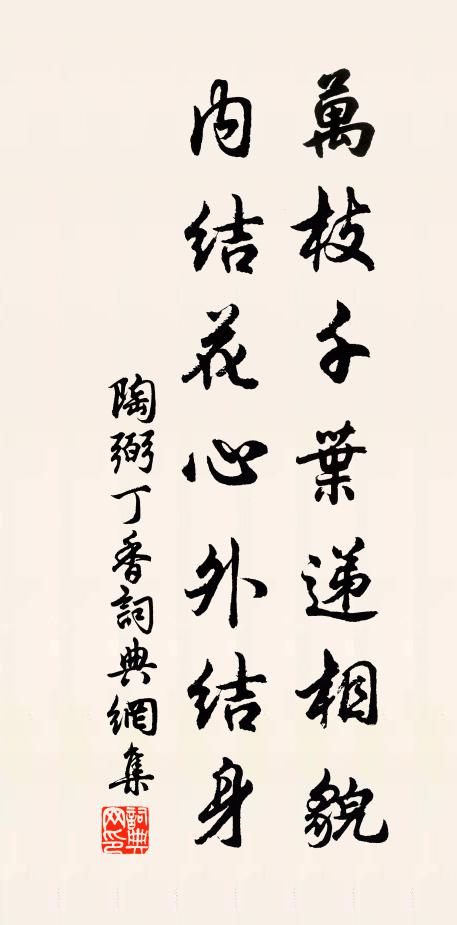 萬枝千葉递相貌
内结花心外结身
陶弼丁香詞典網集
詞典網印